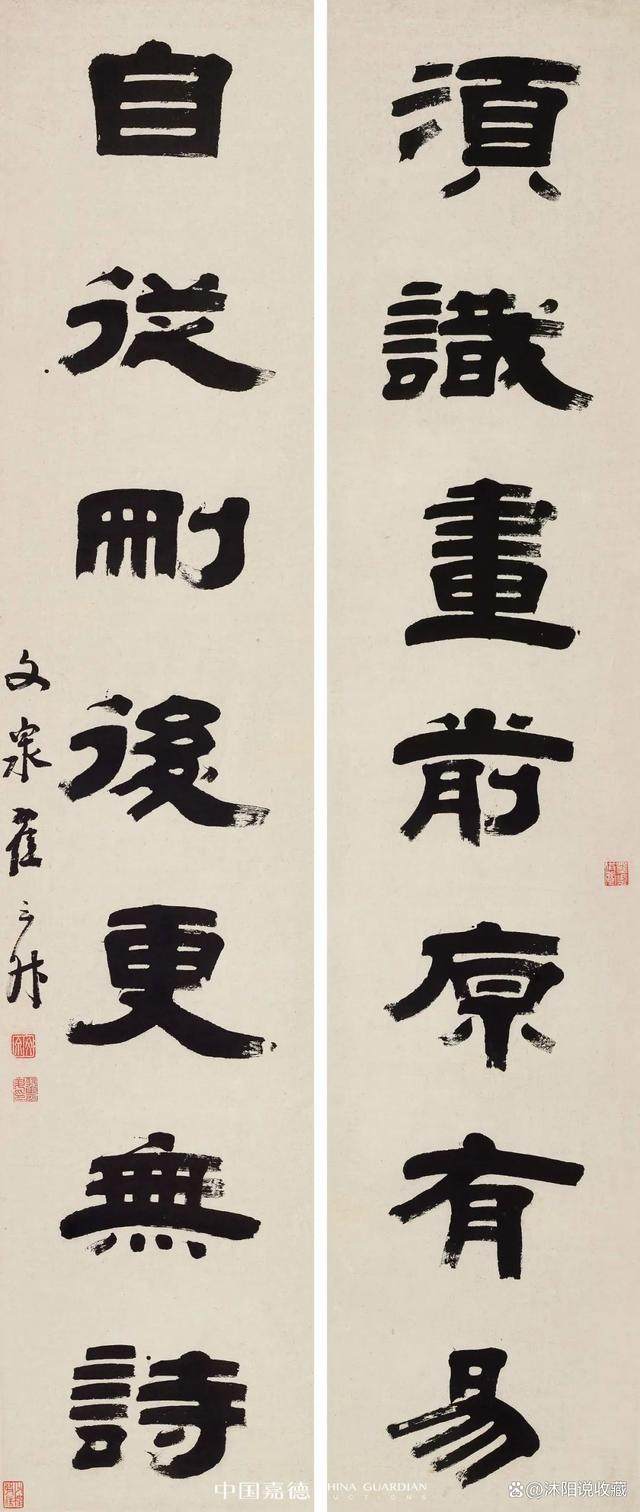 須識畫前原有易
自從刪後更無詩
文泉翟云升
中国嘉德
HINA GUARDIAN
@沐阳说收藏